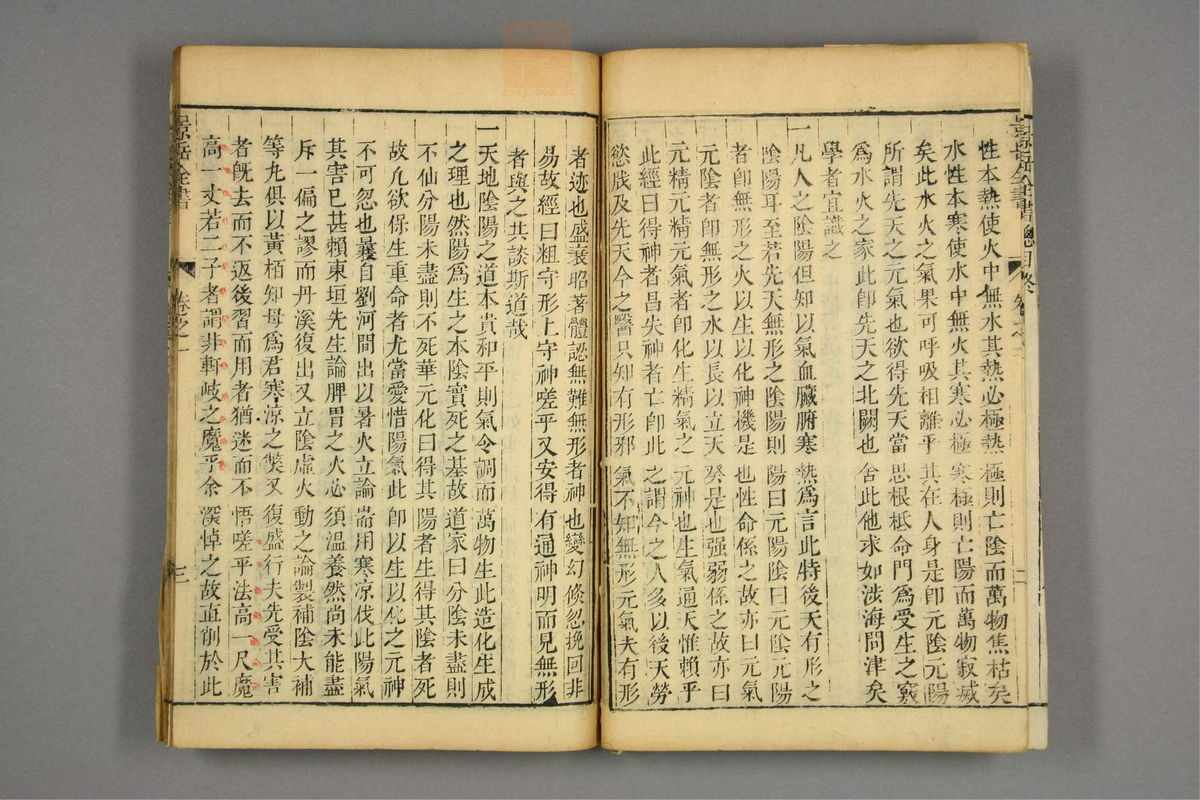 景岳全書總目終 卷之一 二
性本熱使火中無水其熱必極熱極則亡陰而萬物焦枯矣
水性本寒使水中無火其寒必極寒極則亡陽而萬物寂滅
矣此水火之氣果可呼吸相離乎其在人身是卽元陰元陽
所謂先天之元氣也欲得先天當思根柢命門爲受生之竅
爲水火之家此卽先天之北闕也舍此他求如涉海問津矣
學者宜識之
一凡人之陰陽但知以氣血臟腑寒熱爲言此特後天有形之
陰陽耳至若先天無形之陰陽則陽曰元陽陰曰元陰元陽
者卽無形之火以生以化神機是也性命係之故亦曰元氣
元陰者卽無形之水以長以立天癸是也强弱係之故亦曰
元精元精元氣者卽化生精氣之元神也生氣通天惟賴乎
此經曰得神者昌失神者亡卽此之謂今之人多以後天勞
慾戕及先天今之醫只知有形邪氣不知無形元氣夫有形
者迹也盛衰昭著體認無難無形者神也變幻倐忽挽回非
易故經曰粗守形上守神嗟乎又安得有通神明而見無形
者與之共談斯道哉
一天地陰陽之道本貴和平則氣令調而萬物生此造化生成
之理也然陽爲生之本陰實死之基故道家曰分陰未盡則
不仙分陽未盡則不死華元化曰得其陽者生得其陰者死
故凡欲保生重命者尤當愛惜陽氣此卽以生以化之元神
不可忽也曩自劉河間出以暑火立論耑用寒凉伐此陽氣
其害已甚賴東垣先生論脾胃之火必須溫養然尚未能盡
斥一偏之謬而丹溪復出又立陰虛火動之論製補陰大補
等丸俱以黃栢知母爲君寒凉之獘又復盛行夫先受其害
者旣去而不返後習而用者猶迷而不悟嗟乎法高一尺魔
高一丈若二子者謂非軒岐之魔乎余深悼之故直削於此
景岳全書 卷之一 三